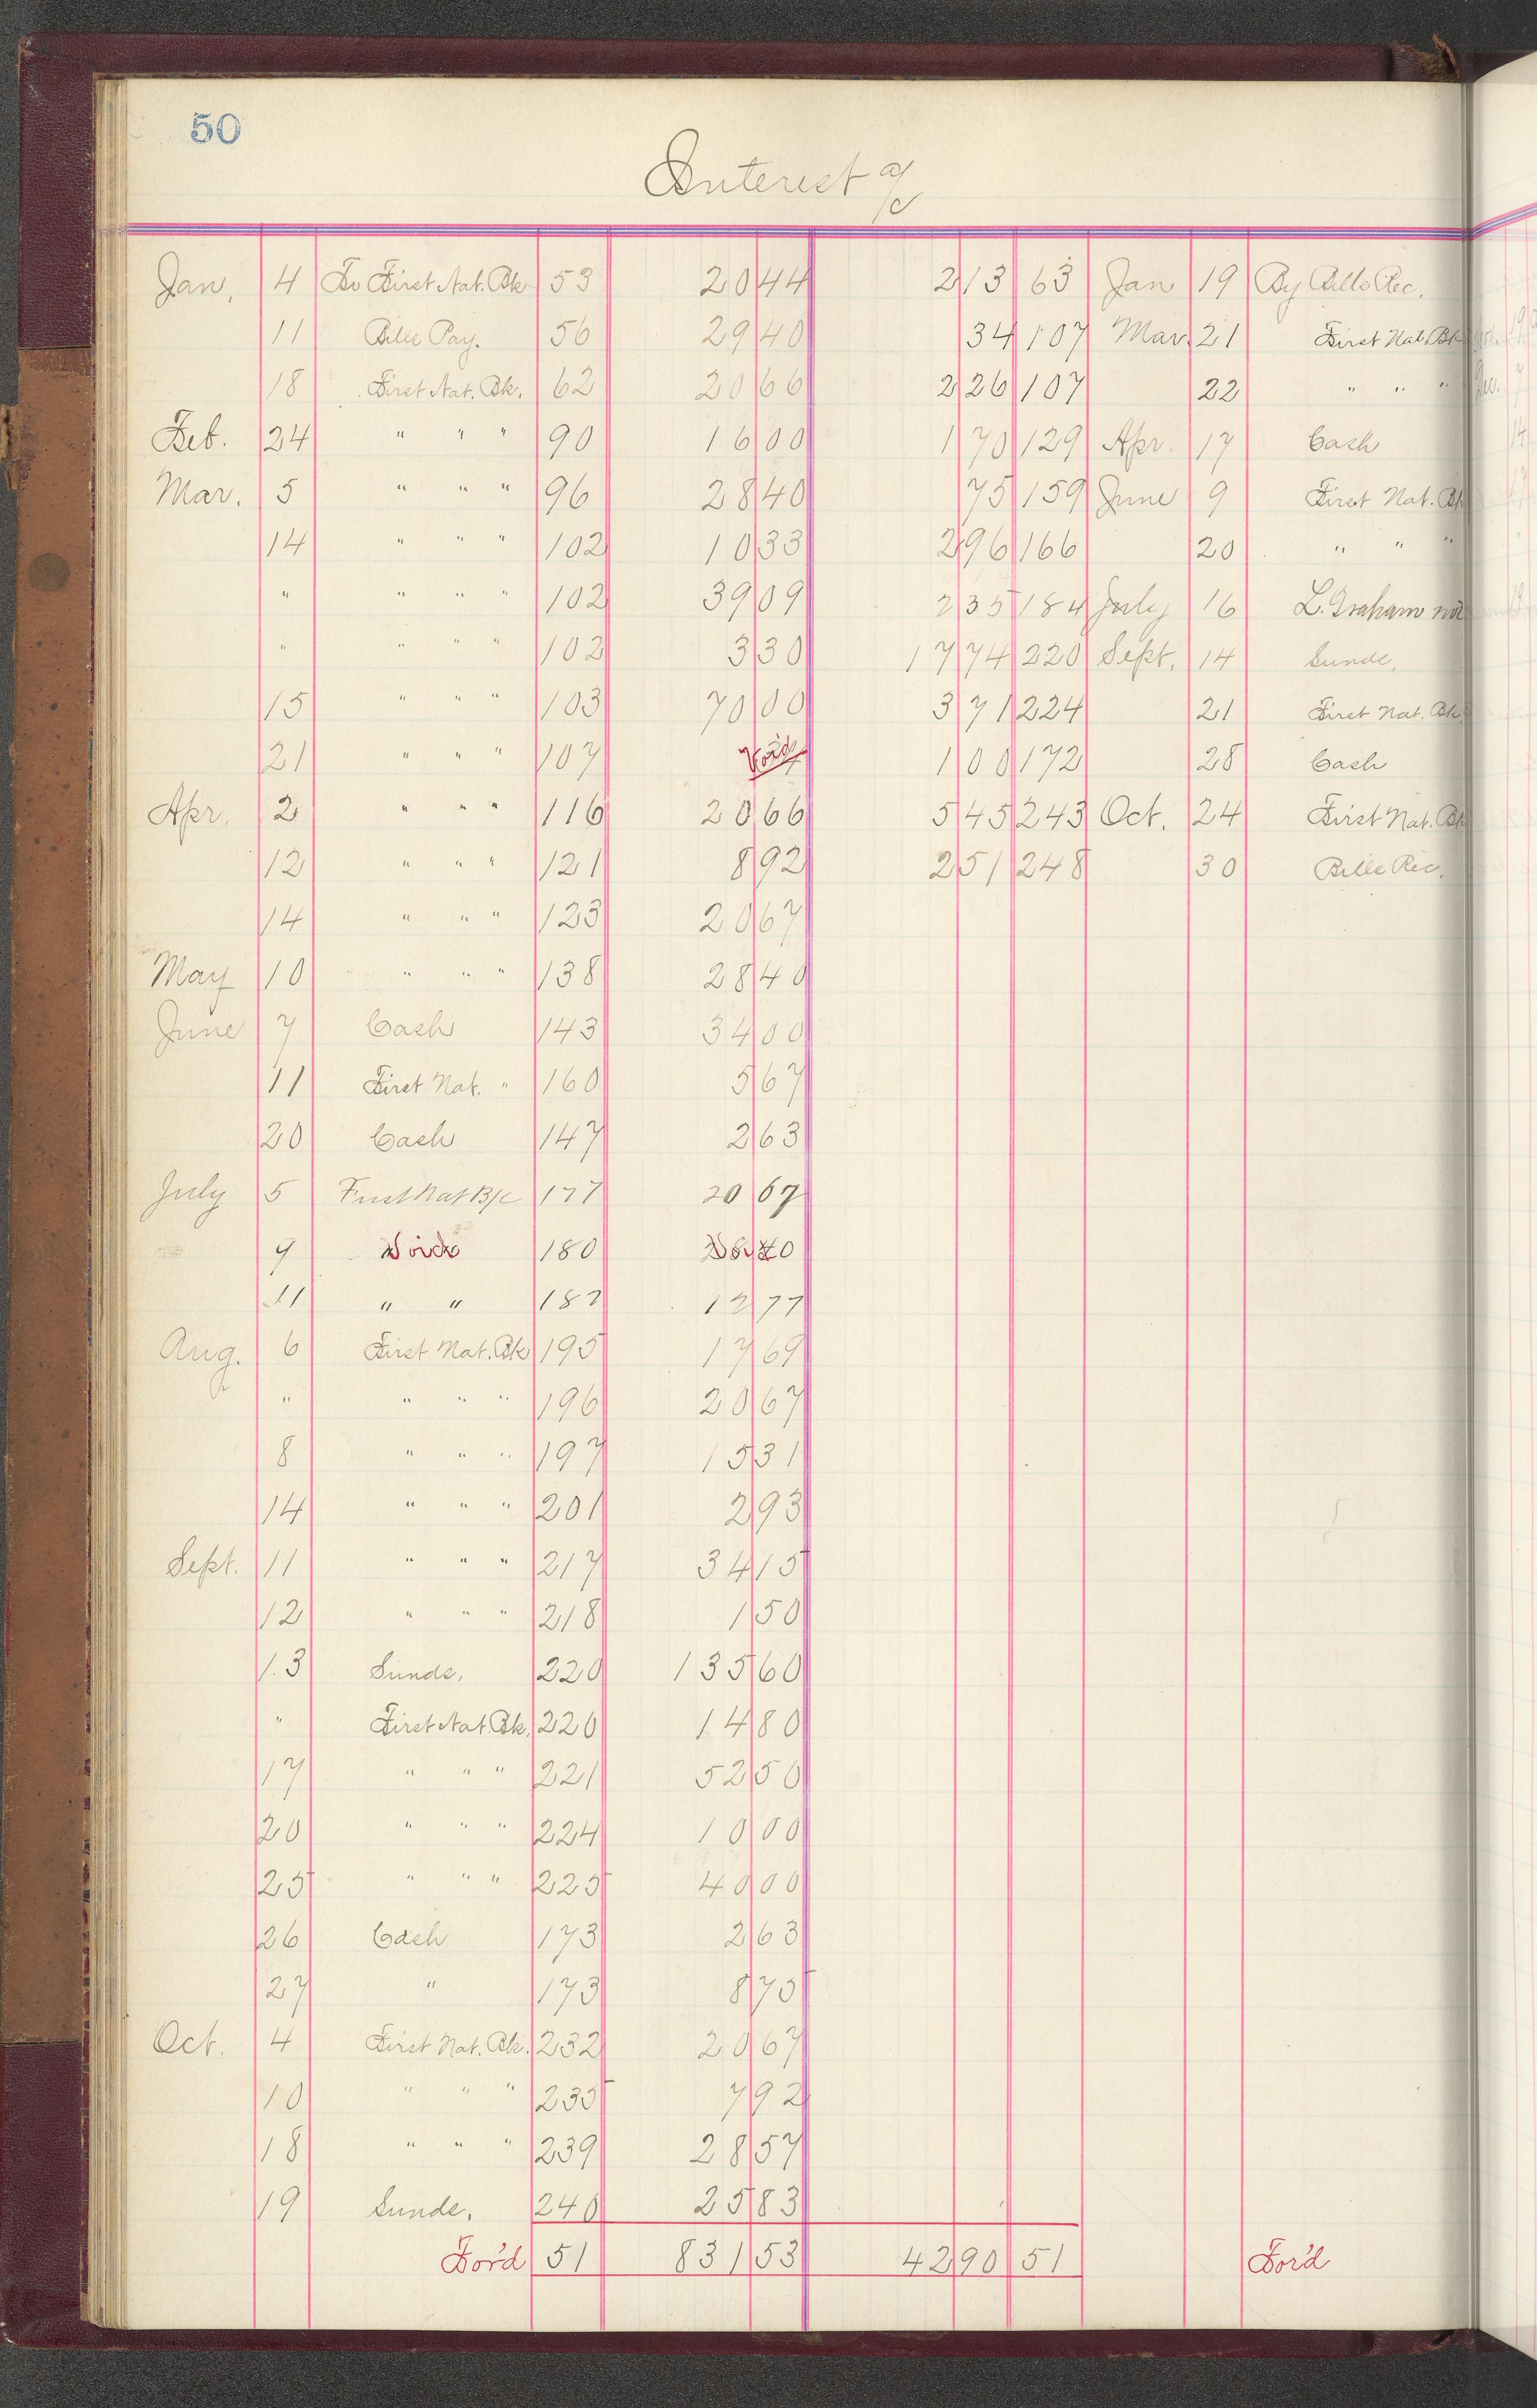 50
Interest a/c
Jan. 4 To First Nat. Bk 53 20 44 2 13 63 Jan 19 By Bills Rec.
11 Bills Pay. 56 29 40 34 107 Mar. 21 First Nat. Bk
18 First Nat. Bk. 62 20 66 2 26 107 22 " " "
Feb. 24 " " " 90 16 00 1 70 129 Apr. 17 Cash
Mar. 5 " " " 96 28 40 75 159 June 9 First Nat. Bk
14 " " " 102 10 33 2 96 166 20 " " "
" " " " 102 39 09 2 35 184 July 16 L. Graham
" " " " 102 3 30 17 74 220 Sept. 14 Sunds.
15 " " " 103 70 00 3 71 224 21 First Nat. Bk
21 " " " 107 Void 1 00 172 28 Cash
Apr. 2 " " " 116 20 66 5 45 243 Oct. 24 First Nat. Bk
12 " " " 121 8 92 2 51 248 30 Bills Rec.
14 " " " 123 20 67
May 10 " " " 138 28 40
June 7 Cash 143 34 00
11 First Nat. " 160 5 67
20 Cash 147 2 63
July 5 First Nat B/c 177 20 67
9 Void 180
11 " " 182 12 77
Aug. 6 First Nat. Bk 195 17 69
" " " " 196 20 67
8 " " " 197 15 31
14 " " " 201 2 93
Sept. 11 " " " 217 34 15
12 " " " 218 1 50
13 Sunds. 220 135 60
" First Nat. Bk. 220 14 80
17 " " " 221 52 50
20 " " " 224 10 00
25 " " " 225 40 00
26 Cash 173 2 63
27 " 173 8 75
Oct. 4 First Nat. Bk. 232 20 67
10 " " " 235 7 92
18 " " " 239 28 57
19 Sunds. 240 25 83
For'd 51 831 53 42 90 51 For'd